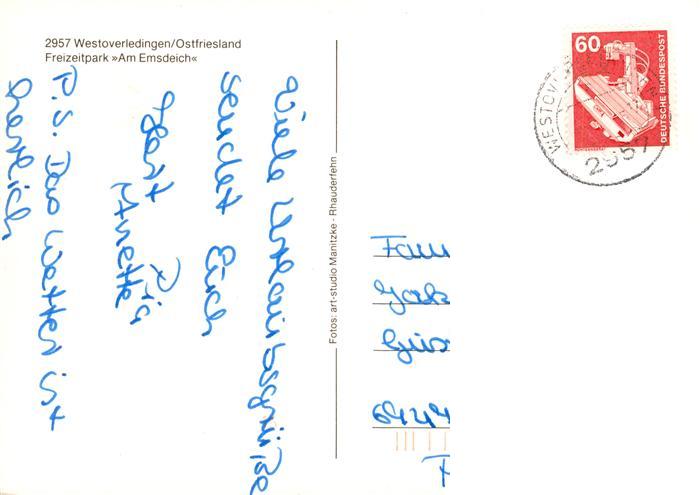 2957 Westoverledingen/Ostfriesland
Freizeitpark »Am Emsdeich«
Viele Urlaubsgrüße
sendet Euch
Horst Pia
Annette
P.S. Das Wetter ist
herrlich
Fotos: art-studio Manitzke - Rhauderfehn
60
DEUTSCHE BUNDESPOST
WESTOV
2957
Fam